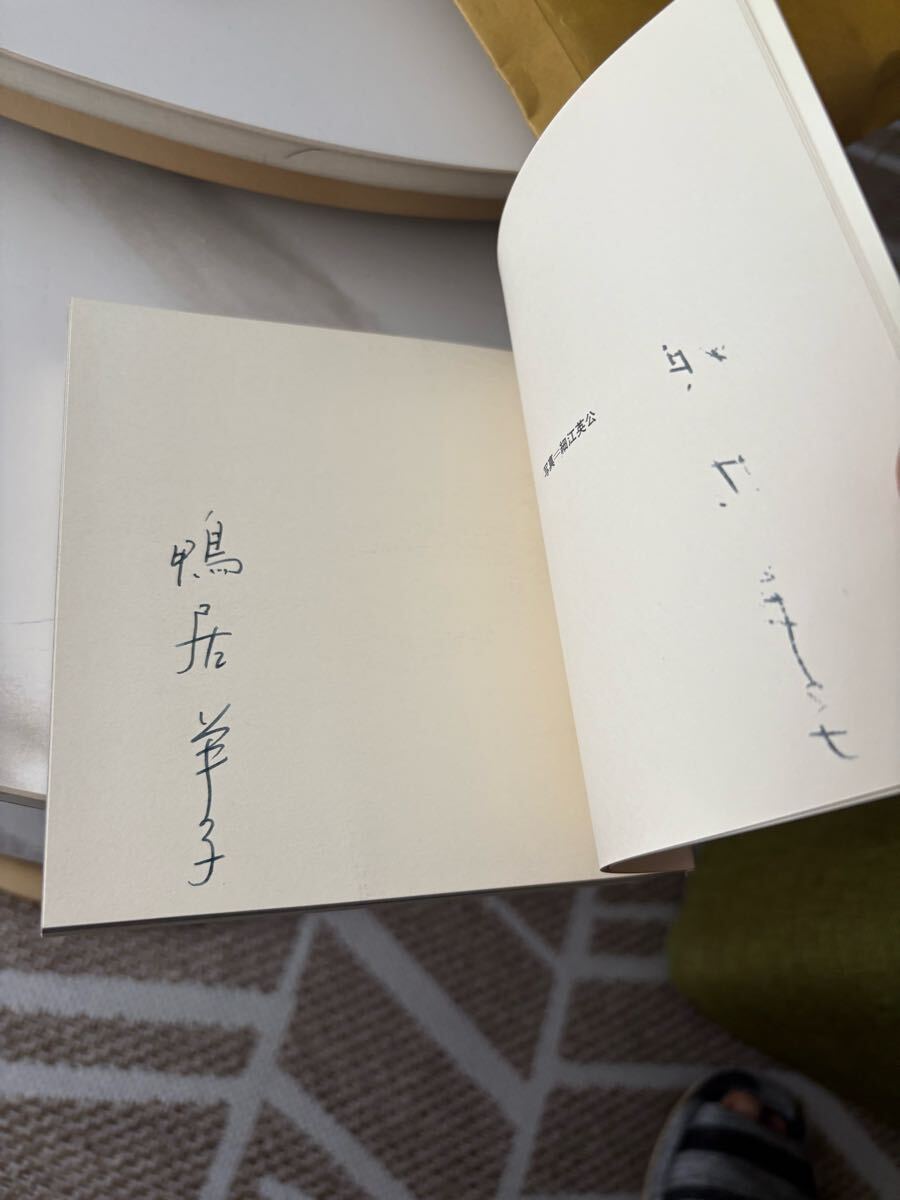 鴨居羊子
写真＝細江英公